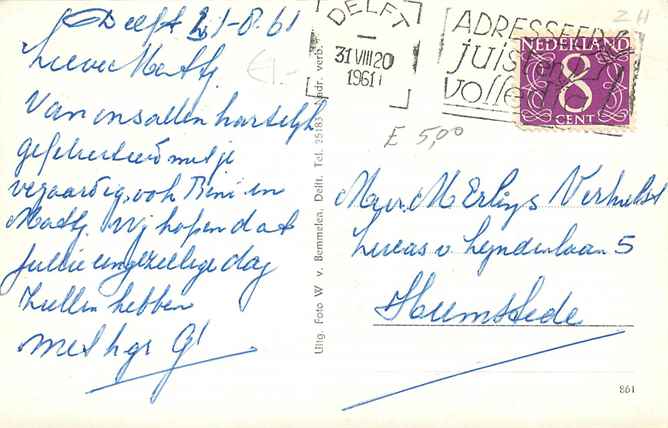 Delft 31-8-61
Lieve Matty
Van ons allen hartelijk
gefeliciteerd met je
verjaardag, ook Rini en
Matty. Wij hopen dat
jullie een gezellige dag
zullen hebben
met hgr G!
DELFT
31 VIII 20
1961
ADRESSEER
juist
volle
NEDERLAND
8
CENT
ZH
€1.-
£ 5,00
Mevr. M Erlijs Verhulst
Lucas v Leyndenlaan 5
Heemstede
Uitg. Foto W v. Bemmelen, Delft. Tel. 25183 adr. verb.
861